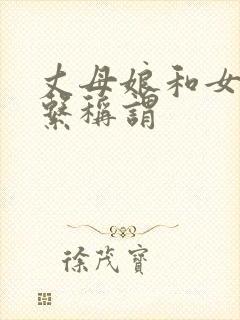 丈母娘和女
繫稱謂
徐茂寶